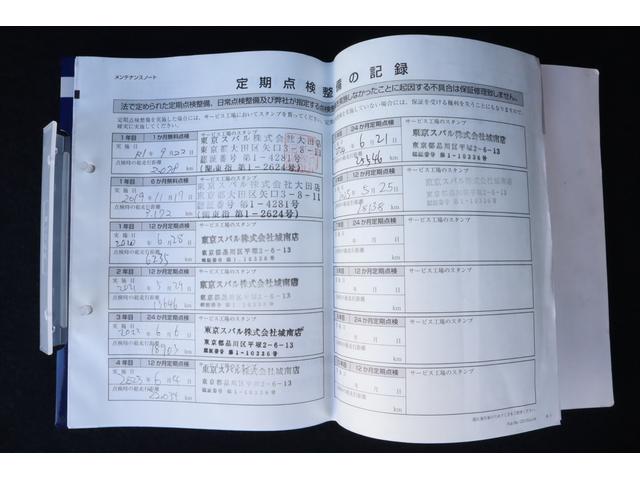 メンテナンスノート
定期点検整備の記録
法で定められた定期点検整備、日常点検整備及び弊社が指定する点検
実施しなかったことに起因する不具合は保証修理致しません。
定期点検整備を実施した場合には、サービス工場においてスタンプを貰ってください。
確実に実施してください。
実施していない場合には、保証を受ける権利を失うことにもなりますので、
1年目 1か月無料点検 サービス工場のスタンプ
実施日 R1年 9月 22日
点検時の総走行距離
2028 km
東京スバル株式会社大田店
東京都大田区矢口3-8-11
認証番号 第1-4281号
(関東指 第1-2624号)
1年目 6か月無料点検 サービス工場のスタンプ
実施日 2019年 11月 17日
点検時の総走行距離
3,172 km
東京スバル株式会社大田店
東京都大田区矢口3-8-11
認証番号 第1-4281号
(関東指 第1-2624号)
1年目 12か月定期点検 サービス工場のスタンプ
実施日 2020年 6月 28日
点検時の総走行距離
6235 km
東京スバル株式会社城南店
東京都品川区平塚2-6-13
認証番号 第1-10336号
2年目 12か月定期点検 サービス工場のスタンプ
実施日 2021年 5月 29日
点検時の総走行距離
13646 km
東京スバル株式会社城南店
東京都品川区平塚2-6-13
認証番号 第1-10336号
3年目 12か月定期点検 サービス工場のスタンプ
実施日 2022年 6月 6日
点検時の総走行距離
18903 km
東京スバル株式会社城南店
東京都品川区平塚2-6-13
認証番号 第1-10336号
4年目 12か月定期点検 サービス工場のスタンプ
実施日 2023年 6月
点検時の総走行距離
22034 km
東京スバル株式会社城南店
東京都品川区平塚2-6-13
認証番号 第1-10336号
24か月定期点検 サービス工場のスタンプ
6月 21日
25546 km
東京スバル株式会社城南店
東京都品川区平塚2-6-13
12か月定期点検 サービス工場のスタンプ
5月 25日
28138 km
東京スバル株式会社城南店
東京都品川区平塚2-6-13
24か月定期点検 サービス工場のスタンプ
年 月 日
km
12か月定期点検 サービス工場のスタンプ
年 月 日
km
24か月定期点検 サービス工場のスタンプ
年 月 日
km
12か月定期点検 サービス工場のスタンプ
年 月 日
km